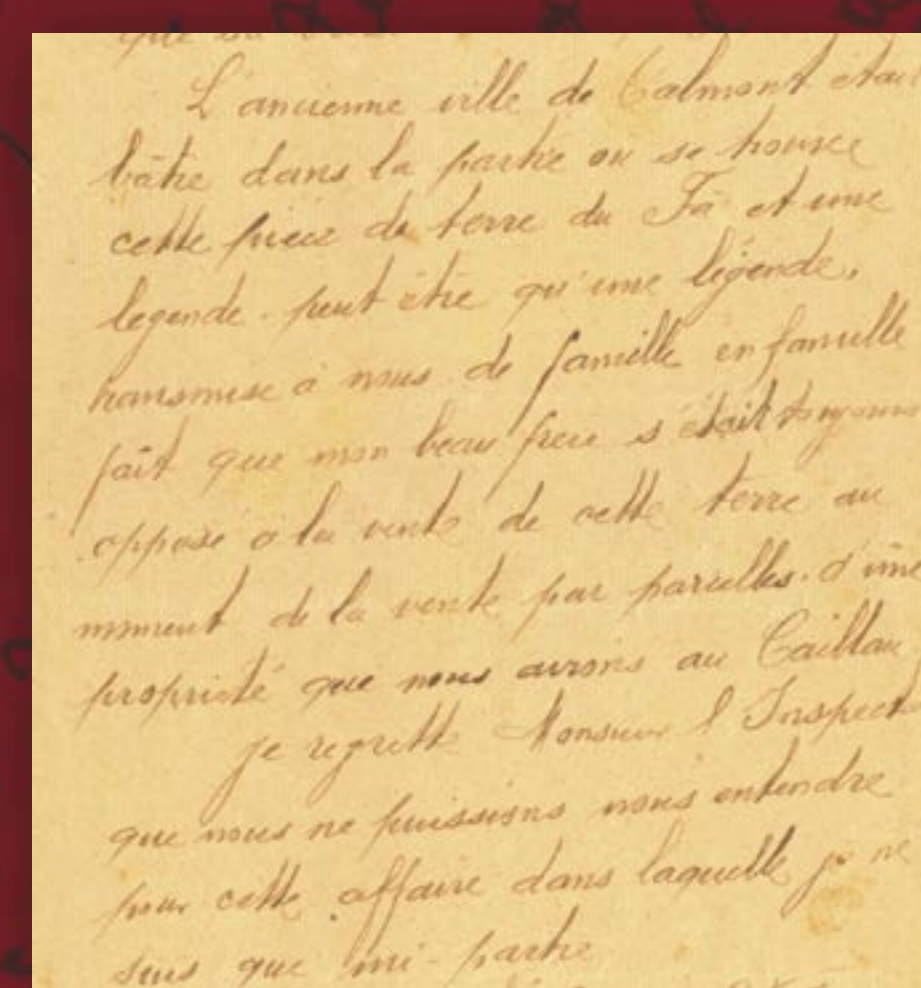 que
L'ancienne ville de Calmont était
bâtie dans la partie ou se trouve
cette pièce de terre du Fâ et une
legende. peut être qu'une légende,
transmise à nous de famille en famille
fait que mon beau frère s'était toujours
opposé à la vente de cette terre au
moment de la vente par parcelles. d'une
propriété que nous avons au Caillau
je regrette Monsieur l'Inspect
que nous ne puissions nous entendre
pour cette affaire dans laquelle je ne
suis que mi-partie